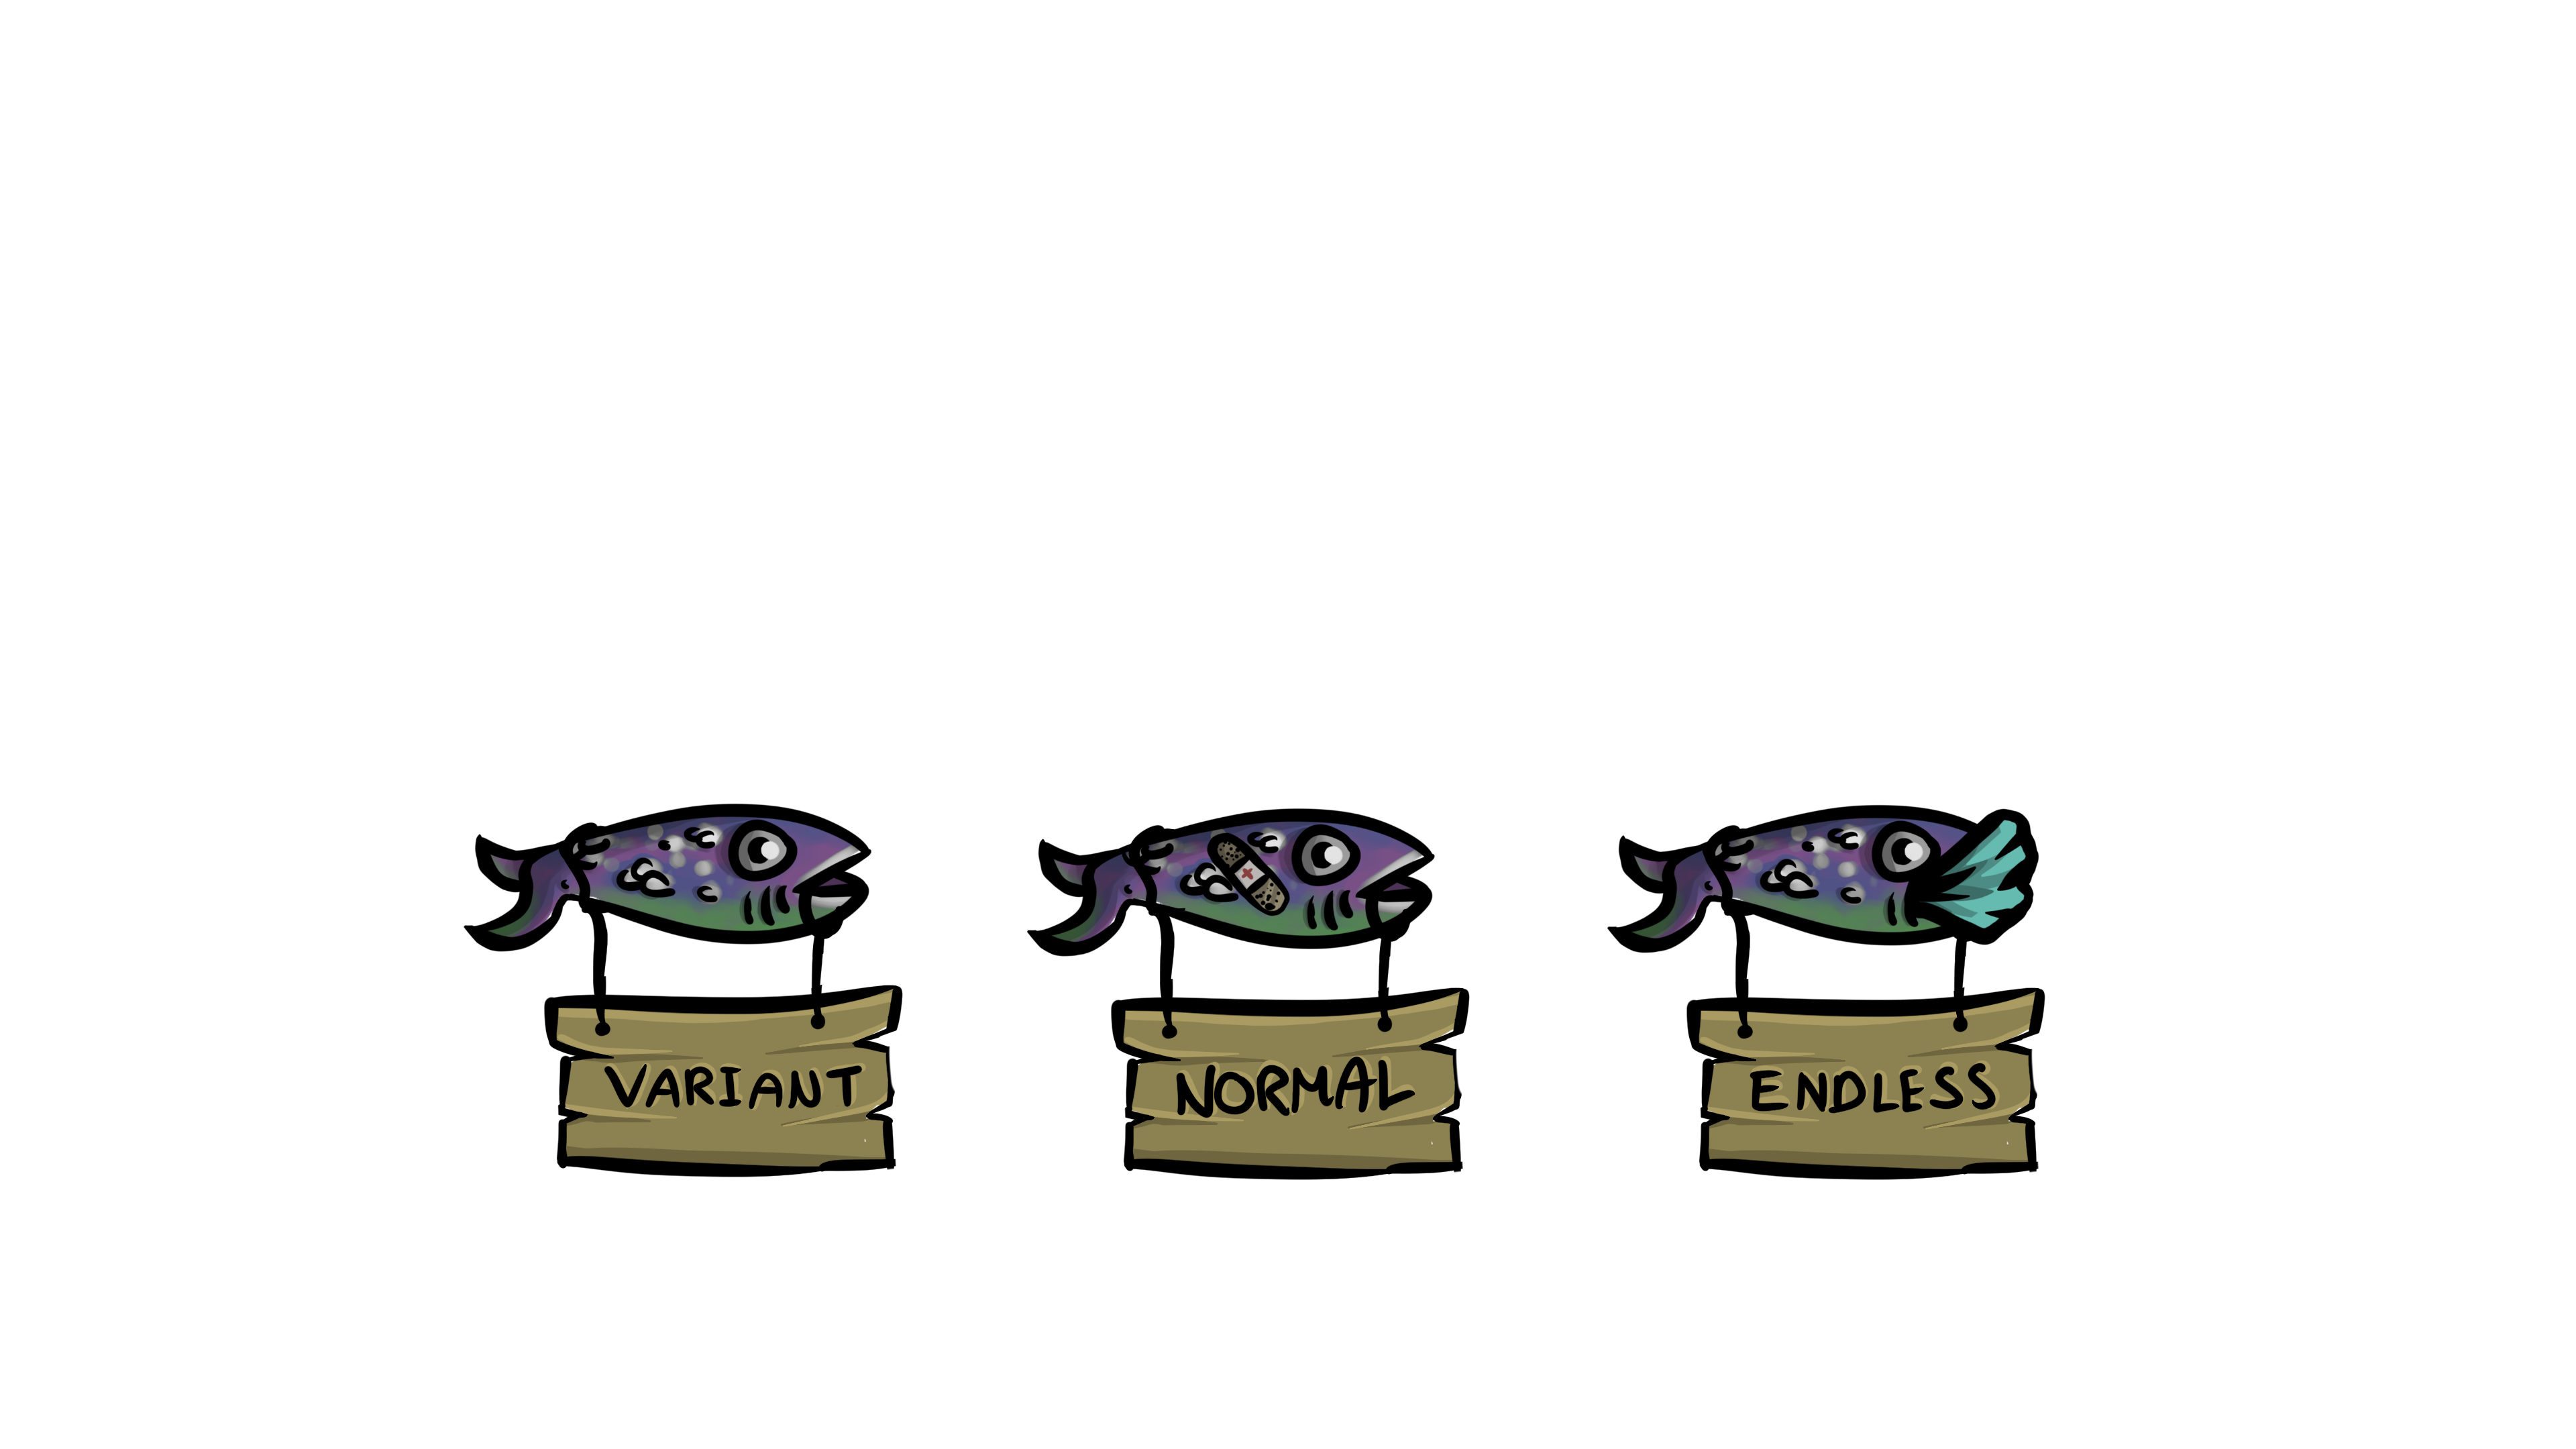 VARIANT
NORMAL
ENDLESS